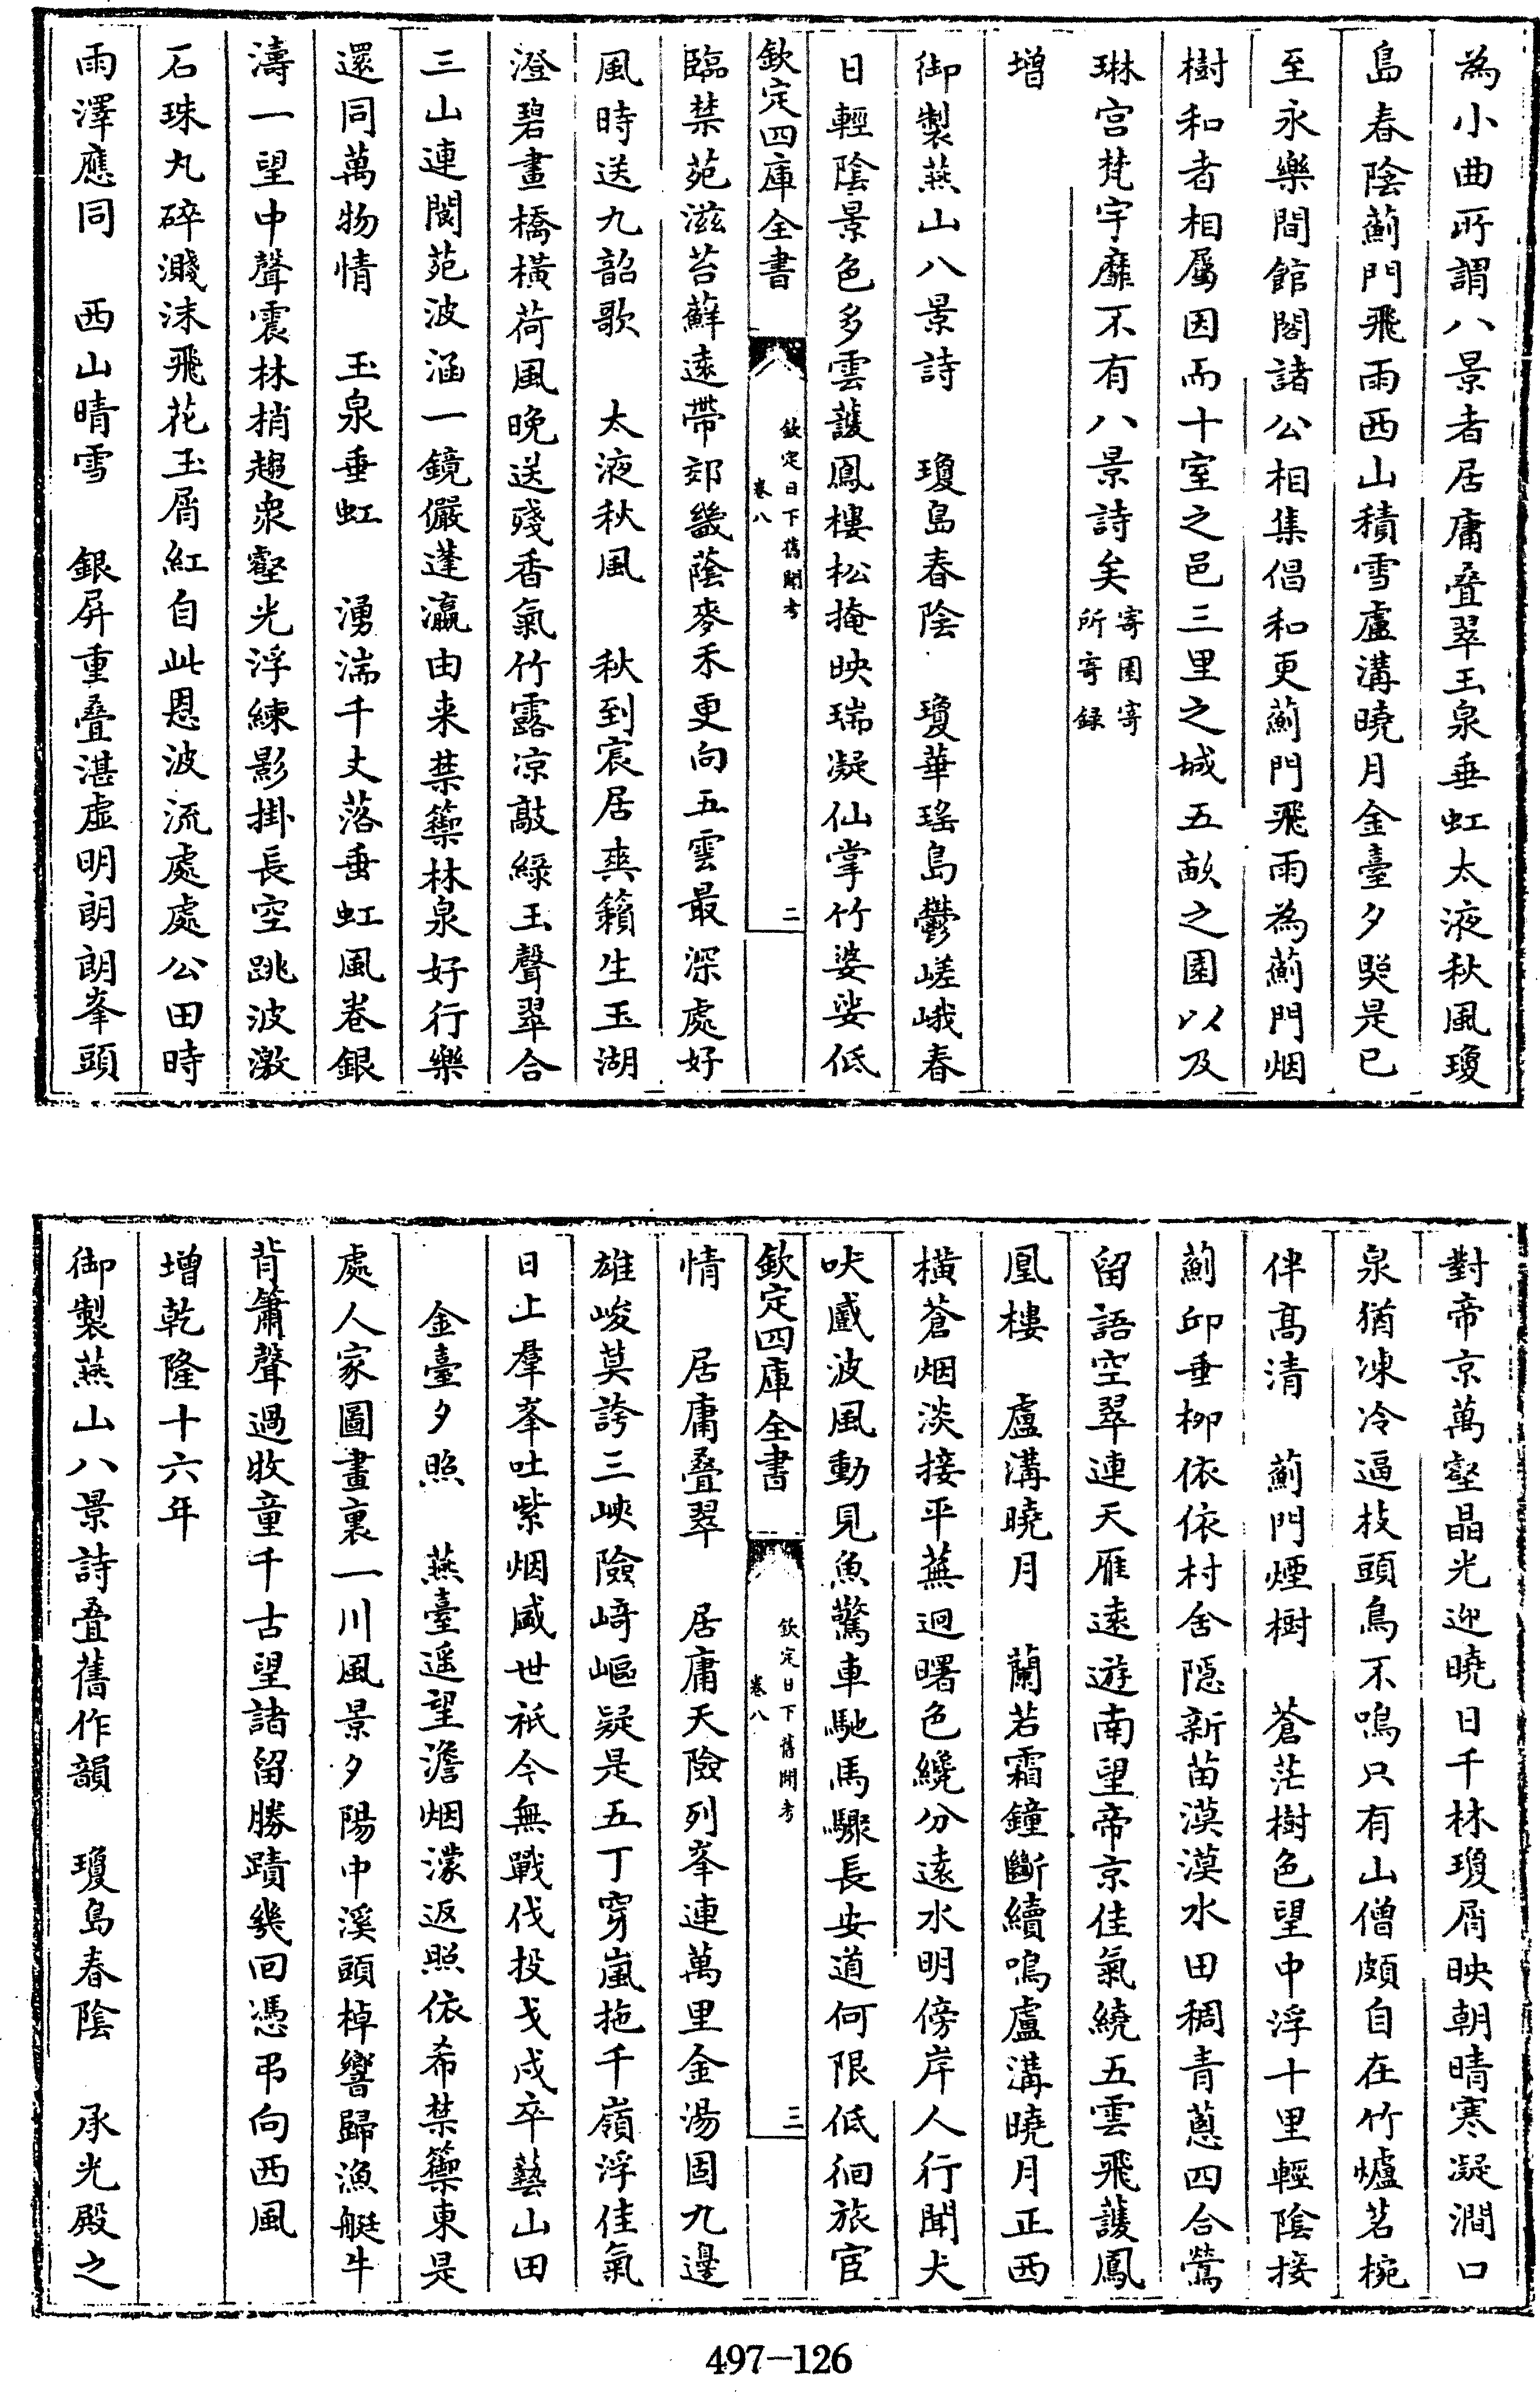 為小曲所謂八景者居庸疊翠玉泉垂虹太液秋風瓊
島春陰薊門飛雨西山積雪盧溝曉月金臺夕照是已
至永樂間館閣諸公相集倡和更薊門飛雨為薊門烟
樹和者相屬因而十室之邑三里之城五畝之園以及
琳宮梵宇靡不有八景詩矣寄園寄所寄録
增
御製燕山八景詩　瓊島春陰　瓊華瑤島鬱嵯峨春
日輕陰景色多雲護鳳樓松掩映瑞凝仙掌竹婆娑低
欽定四庫全書　欽定日下舊聞考卷八　二
臨禁苑滋苔蘚遠帶郊畿蔭麥禾更向五雲最深處好
風時送九韶歌　太液秋風　秋到宸居爽籟生玉湖
澄碧畫橋橫荷風晚送殘香氣竹露凉敲綠玉聲翠合
三山連閬苑波涵一鏡儼蓬瀛由来禁籞林泉好行樂
還同萬物情　玉泉垂虹　湧湍千丈落垂虹風卷銀
濤一望中聲震林梢趨衆壑光浮練影掛長空跳波激
石珠丸碎濺沫飛花玉屑紅自此恩波流處處公田時
雨澤應同　西山晴雪　銀屏重疊湛虛明朗朗峯頭
對帝京萬壑晶光迎曉日千林瓊屑映朝晴寒凝澗口
泉猶凍冷逼枝頭鳥不鳴只有山僧頗自在竹爐茗椀
伴高清　薊門煙樹　蒼茫樹色望中浮十里輕陰接
薊邱垂栁依依村舍隱新苗漠漠水田稠青蔥四合鶯
留語空翠連天雁遠遊南望帝京佳氣繞五雲飛護鳳
凰樓　盧溝曉月　蘭若霜鐘斷續鳴盧溝曉月正西
橫蒼烟淡接平蕪迥曙色纔分遠水明傍岸人行聞犬
吠臧波風動見魚驚車馳馬驟長安道何限低徊旅宦
欽定四庫全書　欽定日下舊聞考卷八　三
情　居庸疊翠　居庸天險列峯連萬里金湯固九邊
雄峻莫誇三峽險崎嶇疑是五丁穿嵐拖千嶺浮佳氣
日上羣峯吐紫烟盛世祇今無戰伐投戈戍卒藝山田
金臺夕照　燕臺遥望澹烟濛返照依希禁籞東是
處人家圖畫裏一川風景夕陽中溪頭棹響歸漁艇牛
背簫聲過牧童千古望諸留勝蹟幾回憑弔向西風
增乾隆十六年
御製燕山八景詩疊舊作韻　瓊島春陰　承光殿之
497-126